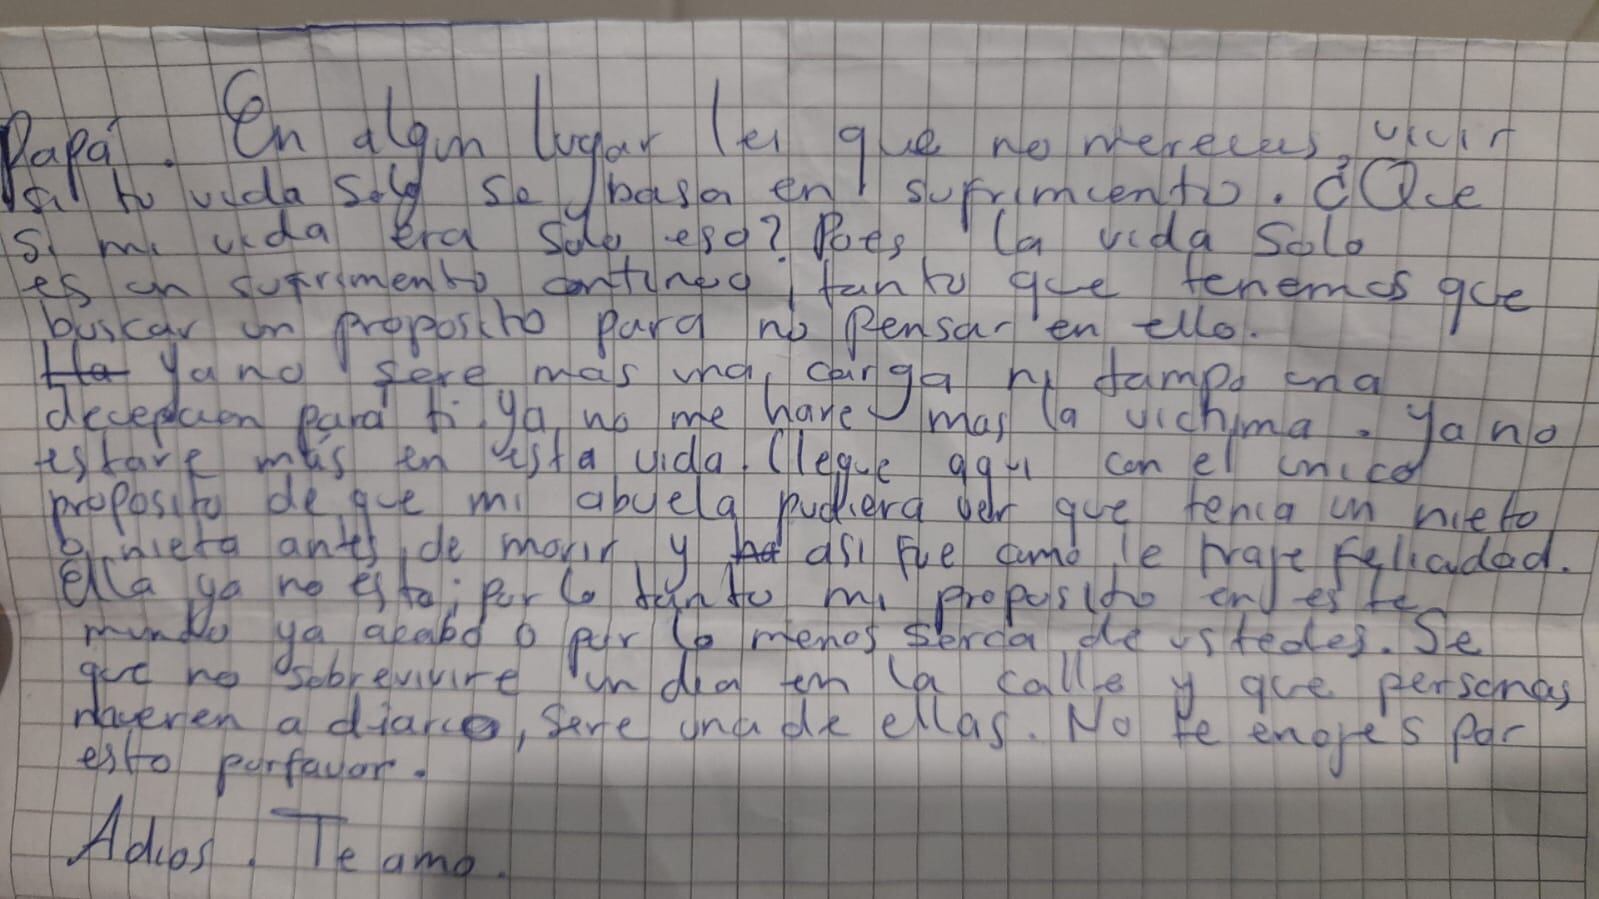 Papá. En algun lugar lei que no mereces vivir
si tu vida solo se basa en sufrimiento. ¿Que
si mi vida era solo eso? Pues la vida solo
es un sufrimento continuo, tanto que tenemos que
buscar un proposito para no pensar en ello.
Ha Ya no sere mas una carga ni tampo una
decepcion para ti. Ya no me hare mas la victima. Ya no
estare más en esta vida. Llegue aqui con el unico
proposito de que mi abuela pudiera ver que tenia un nieto
o nieta antes de morir y ha asi fue como le traje felicidad.
Ella ya no esta, por lo tanto mi proposito en este
mundo ya acabo o por lo menos serca de ustedes. Se
que no sobrevivire un dia en la calle y que personas
mueren a diario, sere una de ellas. No te enojes por
esto porfavor.
Adios. Te amo.